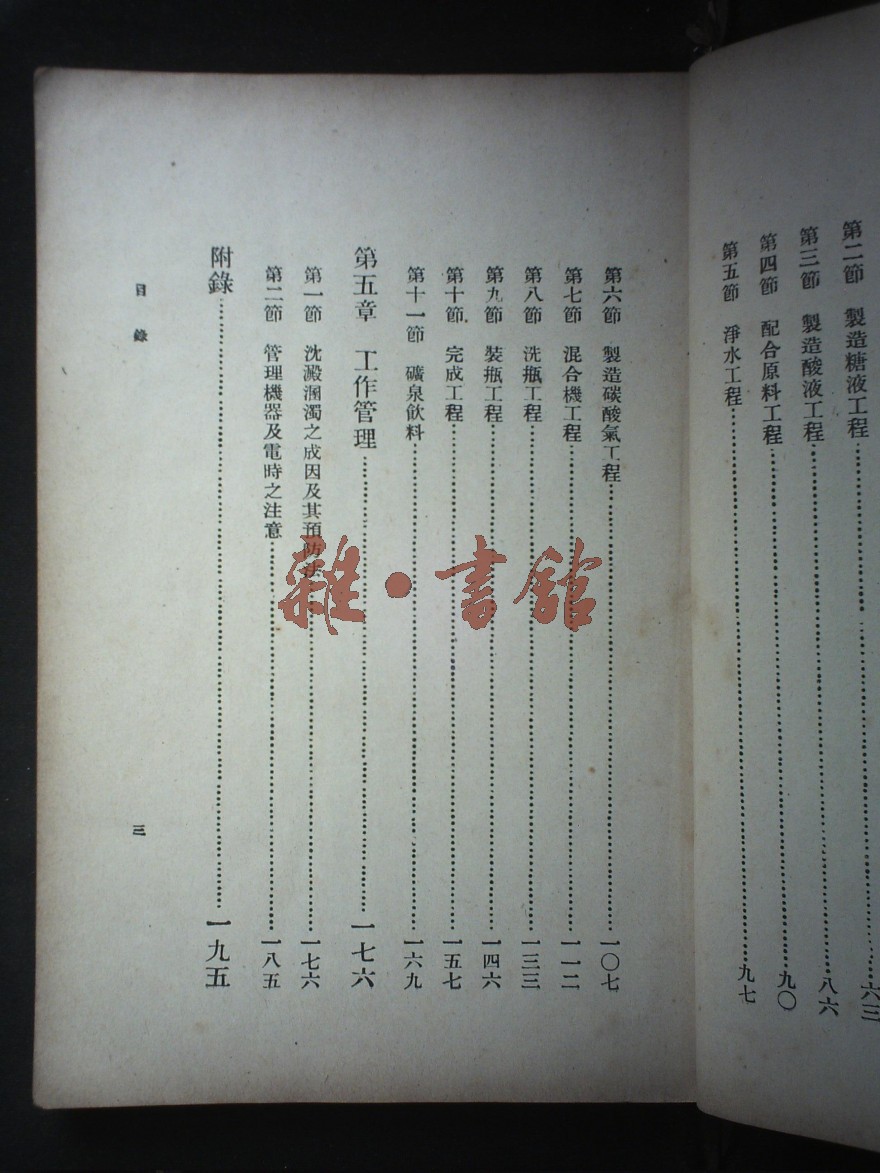 第二節　製造糖液工程……六三
第三節　製造酸液工程……八六
第四節　配合原料工程……九〇
第五節　淨水工程……九七
第六節　製造碳酸氣工程……一〇七
第七節　混合機工程……一一二
第八節　洗瓶工程……一三三
第九節　裝瓶工程……一四六
第十節　完成工程……一五七
第十一節　礦泉飲料……一六九
第五章　工作管理……一七六
第一節　沈澱溷濁之成因及其預防法……一七六
第二節　管理機器及電時之注意……一八五
附錄……一九五
目錄
三
雜・書館